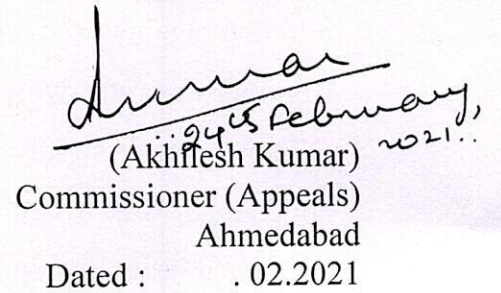 Kumar
24th February,
2021..
(Akhilesh Kumar)
Commissioner (Appeals)
Ahmedabad
Dated : . 02.2021